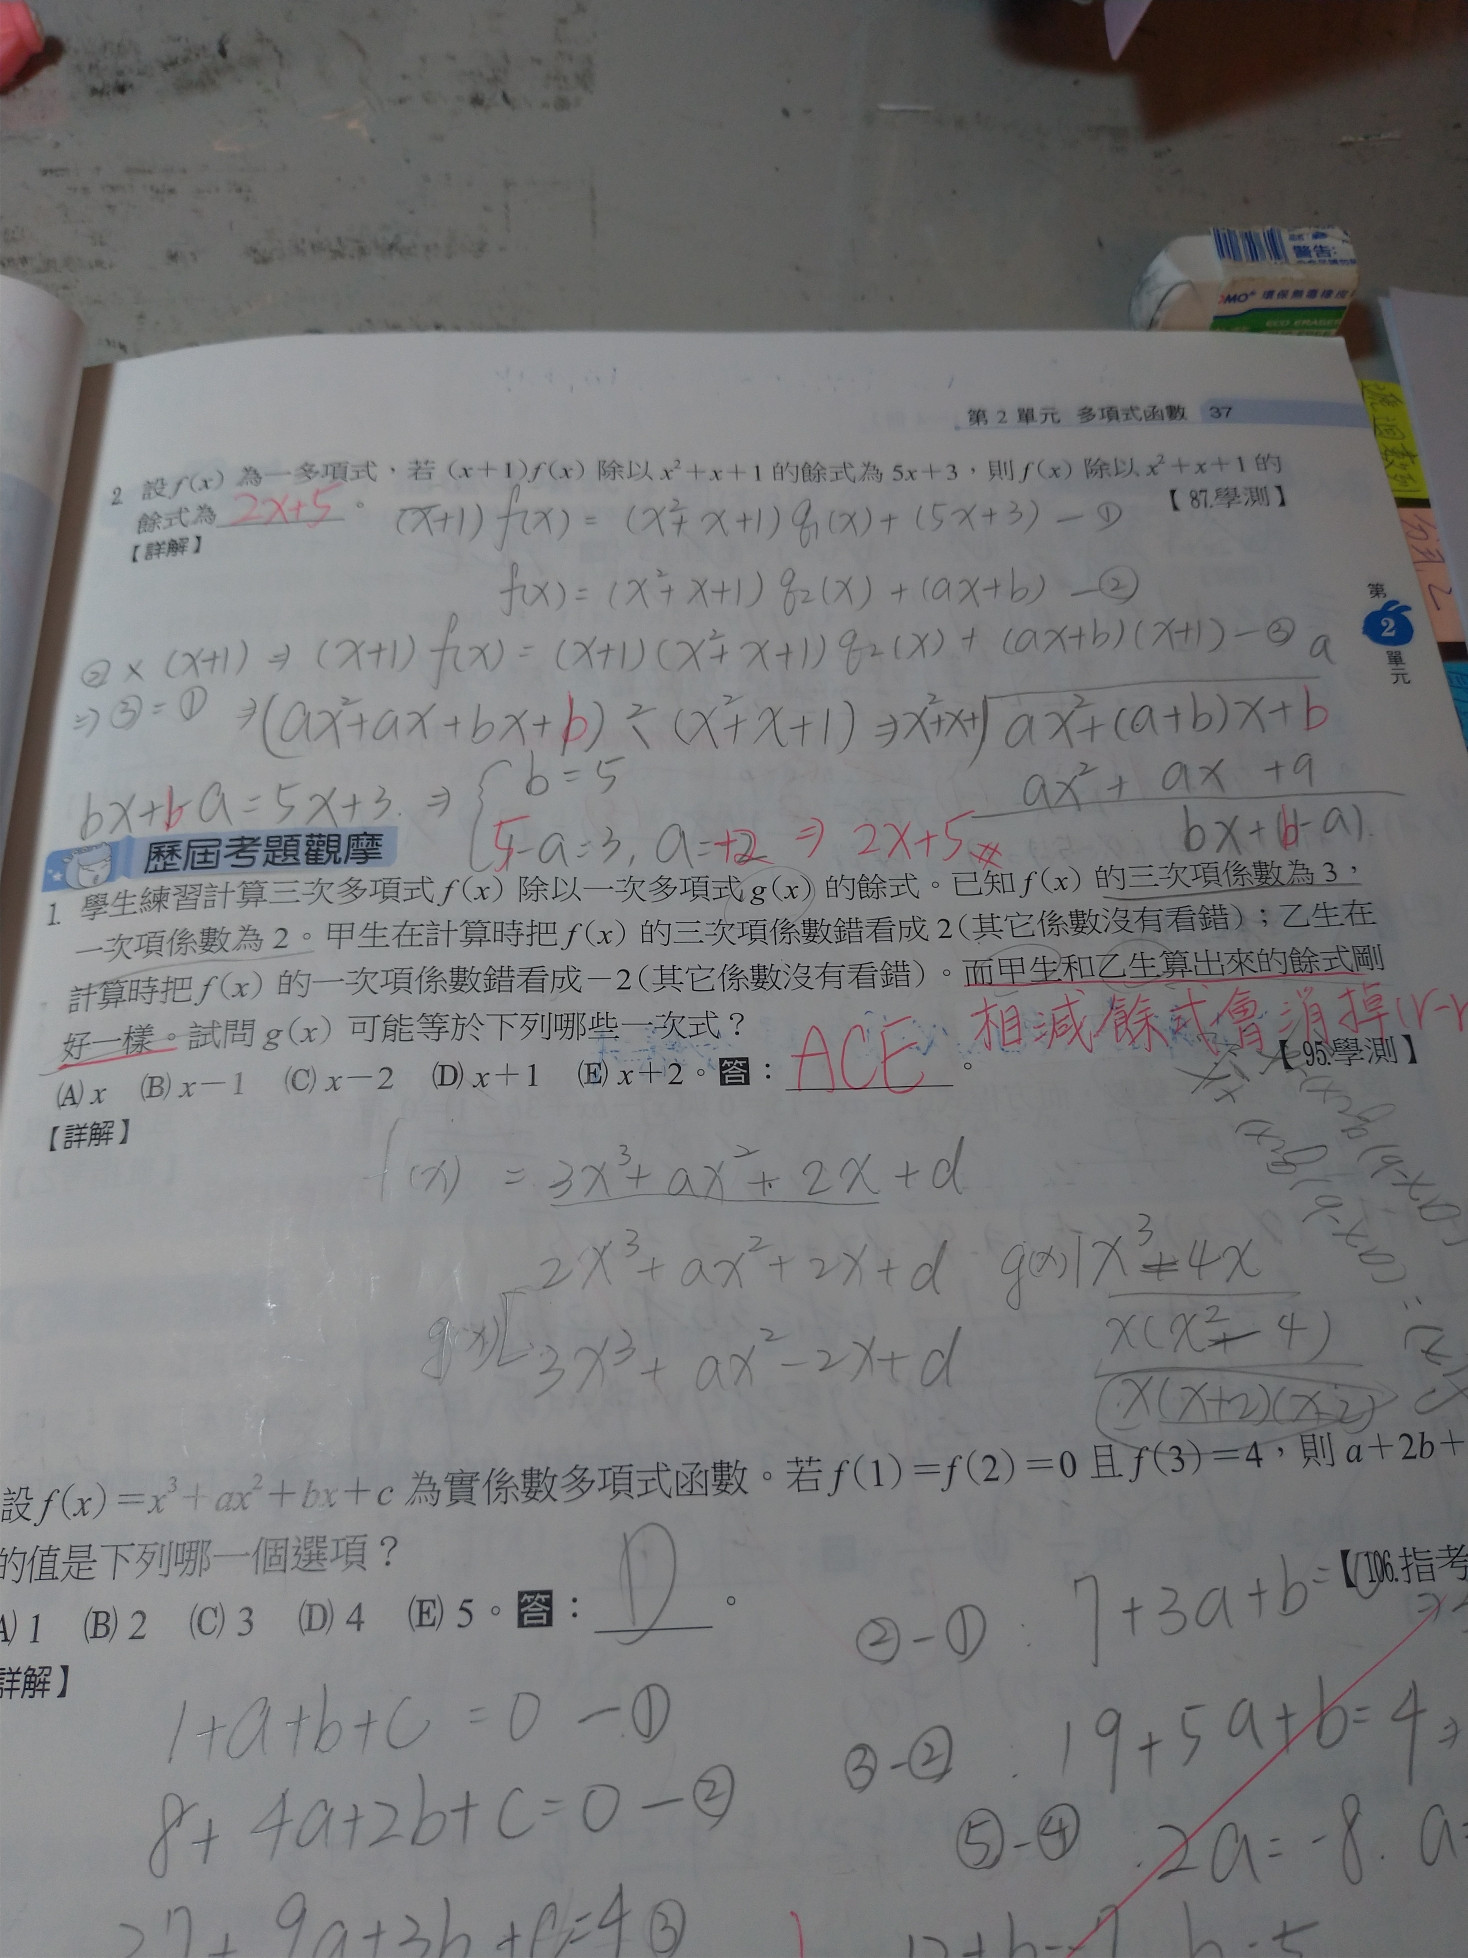 警告:
OMO® 環保無毒橡皮
ECO ERASER
第 2 單元 多項式函數 37
2 設f(x) 為一多項式，若 (x+1)f(x) 除以 x²+x+1 的餘式為 5x+3，則 f(x) 除以 x²+x+1 的
餘式為 2x+5 。 【87.學測】
(x+1) f(x) = (x²+x+1) q₁(x) + (5x+3) —①
【詳解】
f(x) = (x²+x+1) q₂(x) + (ax+b) —②
② × (x+1) ⇒ (x+1) f(x) = (x+1)(x²+x+1) q₂(x) + (ax+b)(x+1) —③
⇒ ③ = ① ⇒ (ax²+ax+bx+b) ÷ (x²+x+1) ⇒
a
x²+x+1 ) ax²+(a+b)x+b
ax² + ax + a
bx+(b-a).
bx+b-a = 5x+3. ⇒ { b=5
5-a=3, a=+2 ⇒ 2x+5
第
2
單
元
歷屆考題觀摩
1. 學生練習計算三次多項式 f(x) 除以一次多項式 g(x) 的餘式。已知 f(x) 的三次項係數為 3，
一次項係數為 2。甲生在計算時把 f(x) 的三次項係數錯看成 2(其它係數沒有看錯)；乙生在
計算時把 f(x) 的一次項係數錯看成－2(其它係數沒有看錯)。而甲生和乙生算出來的餘式剛
好一樣。試問 g(x) 可能等於下列哪些一次式？
相減餘式會消掉(r-r
【95.學測】
(A) x (B) x－1 (C) x－2 (D) x＋1 (E) x＋2。答： ACE 。
【詳解】
f(x) = 3x³+ax²+2x+d
2x³+ax²+2x+d
g(x) 3x³+ax²-2x+d
g(x)|x³-4x
x(x²-4)
x(x+2)(x-2)
設 f(x)＝x³＋ax²＋bx＋c 為實係數多項式函數。若 f(1)＝f(2)＝0 且 f(3)＝4，則 a＋2b＋
的值是下列哪一個選項？
【106.指考
A) 1 (B) 2 (C) 3 (D) 4 (E) 5。答： D 。
詳解】
1+a+b+c = 0 —①
8+4a+2b+c=0 —②
27+9a+3b+c=4 ③
②-① : 7+3a+b=0
③-② : 19+5a+b=4 ⇒
⑤-④ : 2a=-8. a=